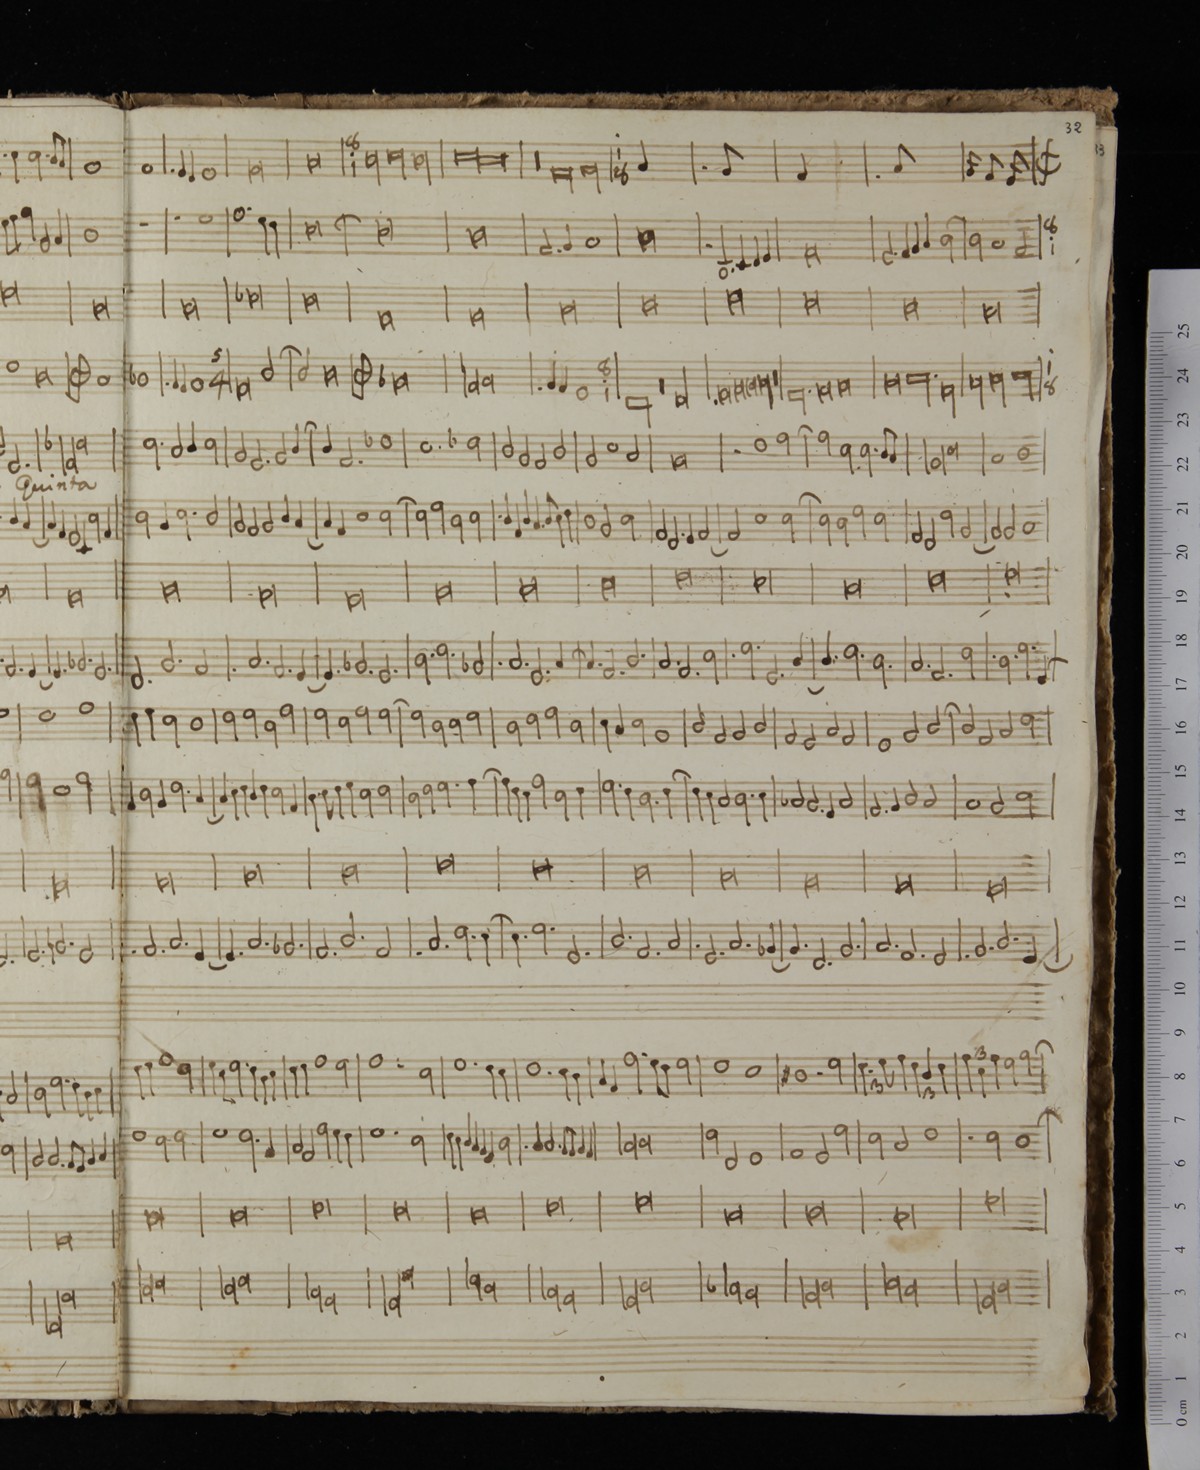 32
33
Quinta
5
4
3
3
3
25
24
23
22
21
20
19
18
17
16
15
14
13
12
11
10
9
8
7
6
5
4
3
2
1
0 cm